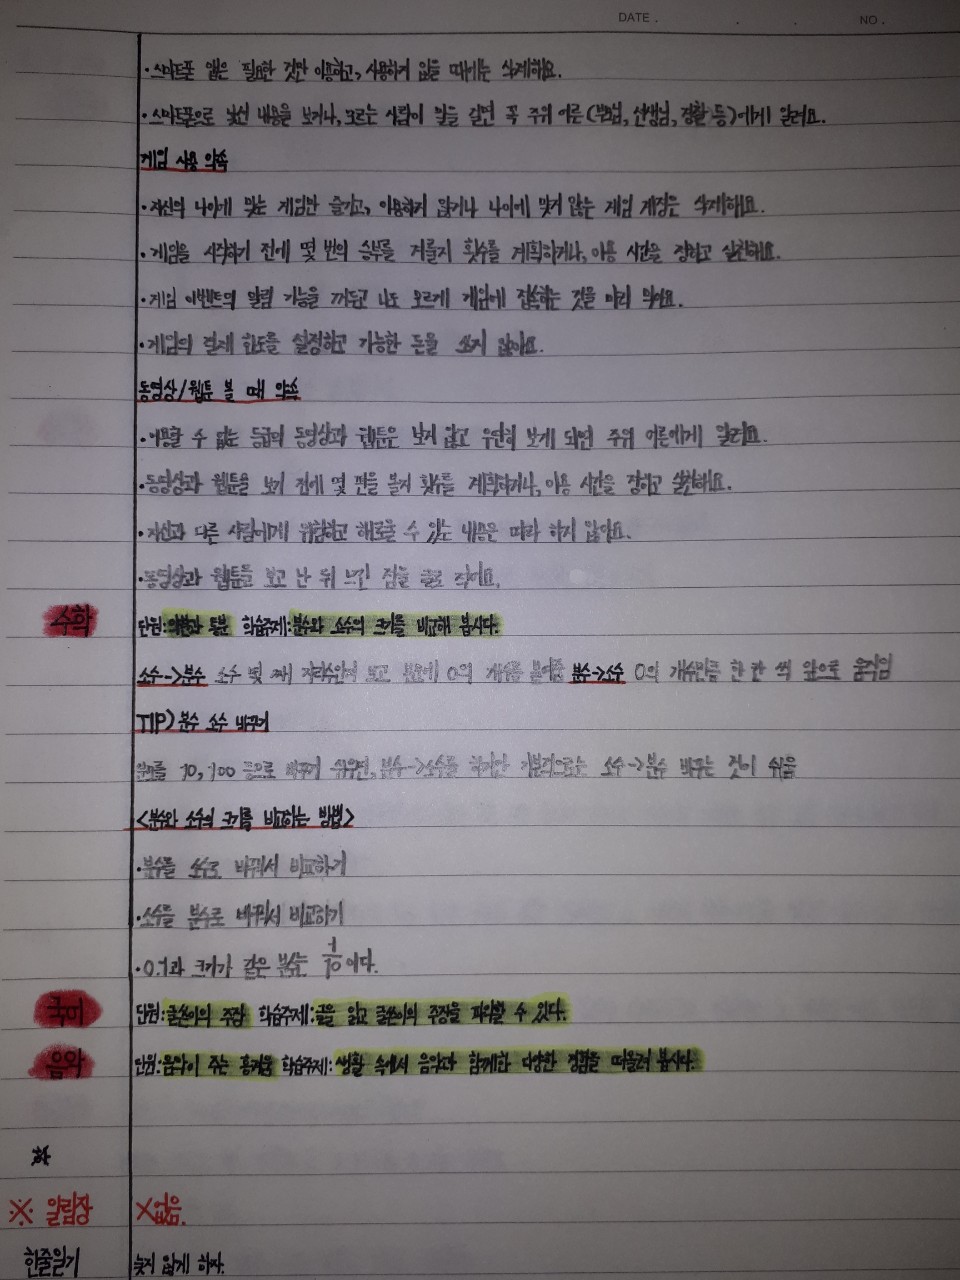 DATE . . . NO .
·스마트폰 앱은 필요한 것만 이용하고, 사용하지 않을 때에는 삭제해요.
·스마트폰으로 낯선 내용을 보거나, 모르는 사람이 말을 걸면 꼭 주위 어른(부모님, 선생님, 경찰 등)에게 알려요.
게임 사용 약속
·자신의 나이에 맞는 게임만 즐기고, 이용하지 않거나 나이에 맞지 않는 게임 계정은 삭제해요.
·게임을 시작하기 전에 몇 번의 승부를 겨룰지 횟수를 계획하거나, 이용 시간을 정하고 실천해요.
·게임 이벤트의 알림 기능을 꺼두고 나도 모르게 게임에 접속하는 것을 미리 막아요.
·게임의 결제 한도를 설정하고 가능한 돈을 쓰지 않아요.
동영상/웹툰 볼 때 약속
·이용할 수 없는 등급의 동영상과 웹툰은 보지 않고 우연히 보게 되면 주위 어른에게 알려요.
·동영상과 웹툰을 보기 전에 몇 편을 볼지 횟수를 계획하거나, 이용 시간을 정하고 실천해요.
·자신과 다른 사람에게 위험하고 해로울 수 있는 내용은 따라 하지 않아요.
·동영상과 웹툰을 보고 난 뒤 느낀 점을 글로 적어요.
수학 단원:약분과 통분 학습주제:분수와 소수의 크기를 비교해 봅시다.
소수->분수 소수 몇 째 자리수인지 보고 분모에 0의 개수를 분수->소수 0의 개수만큼 한 칸 씩 앞으로 움직임
TIP) 분수 소수 바꾸기
분모를 10, 100 등으로 바꾸기 쉬우면, 분수->소수를 하지만 기본적으로는 소수->분수 바꾸는 것이 쉬움
<분수와 소수의 크기를 비교하는 방법>
·분수를 소수로 바꿔서 비교하기
·소수를 분수로 바꿔서 비교하기
·0.1과 크기가 같은 분수는 1/10이다.
국어 단원:글쓴이의 주장 학습주제:글을 읽고 글쓴이의 주장을 파악할 수 있다.
음악 단원:음악이 주는 즐거움 학습주제:생활 속에서 음악과 함께한 다양한 경험을 떠올려 봅시다.
※ 알림장 X없음.
한줄일기 늦지 않게 하자.